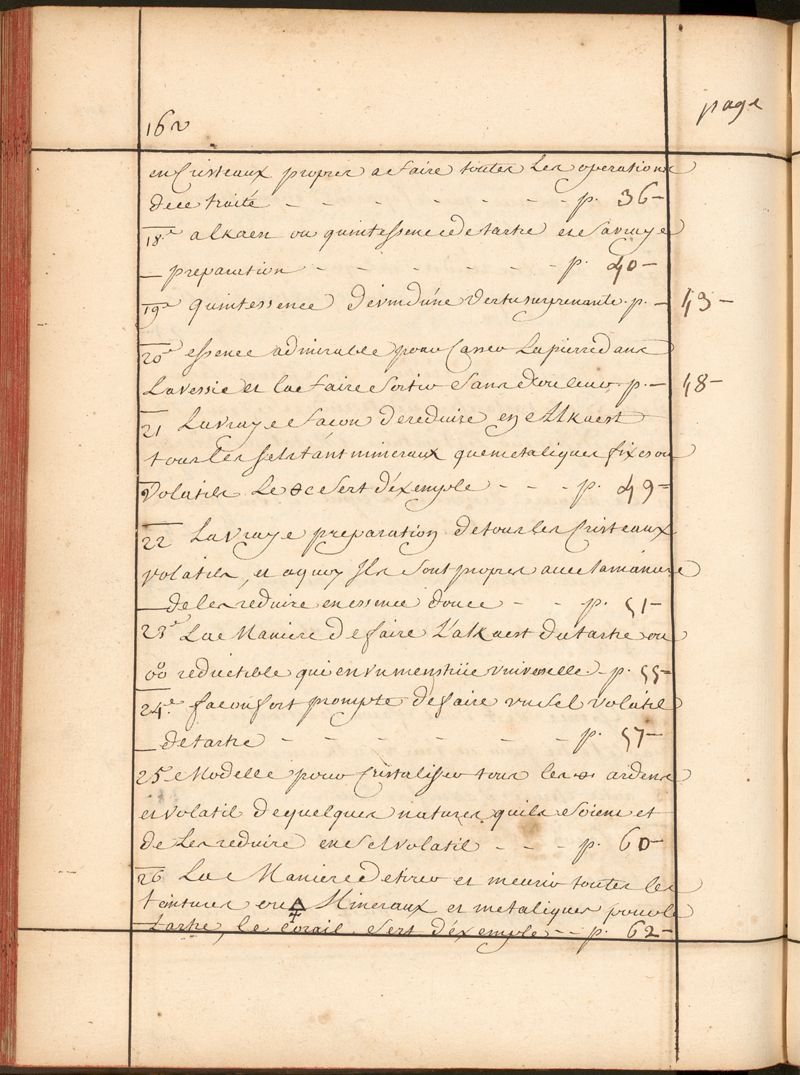 162
page
en Cristeaux propres a faire toutes Les operations
de ce traité - - - - - - - - p. 36 -
18.e alkaen ou quintessence de tartre et sa vraye
preparation - - - - - - - p. 40 -
19.e quintessence de vin d'une vertu surprenante. p. - 43 -
20.e essence admirable pour Casser La pierre dans
La vessie et la faire Sortir Sans douleur p. - 48 -
21 La vraye façon de reduire en Alkaest
tous Les sels tánt mineraux que metaliques fixes ou
volatils Le Sert d'éxemple - - - p. 49 -
22 La vraye preparation de tous les Cristeaux
volatils, et a quoy Ils Sont propres avec la maniere
de les reduire en essence douce - - p. 51 -
23.e La Maniere de faire L'alkaest du tartre ou
reductible qui en un menstrüe universelle - p. 55 -
24.e façon fort prompte de faire un Sel volátil
de tartre - - - - - - - - p. 57 -
25 Modelle pour Cristaliser tous les ardens
et volatil de quelques natures quils Soient et
de Les reduire en Sel volatil - - - p. 60 -
26 La Maniere de tirer et meurir toutes les
teintures Mineraux et metaliques pour le
tartre, le Corail Sert d'éxemple - - p. 62 -